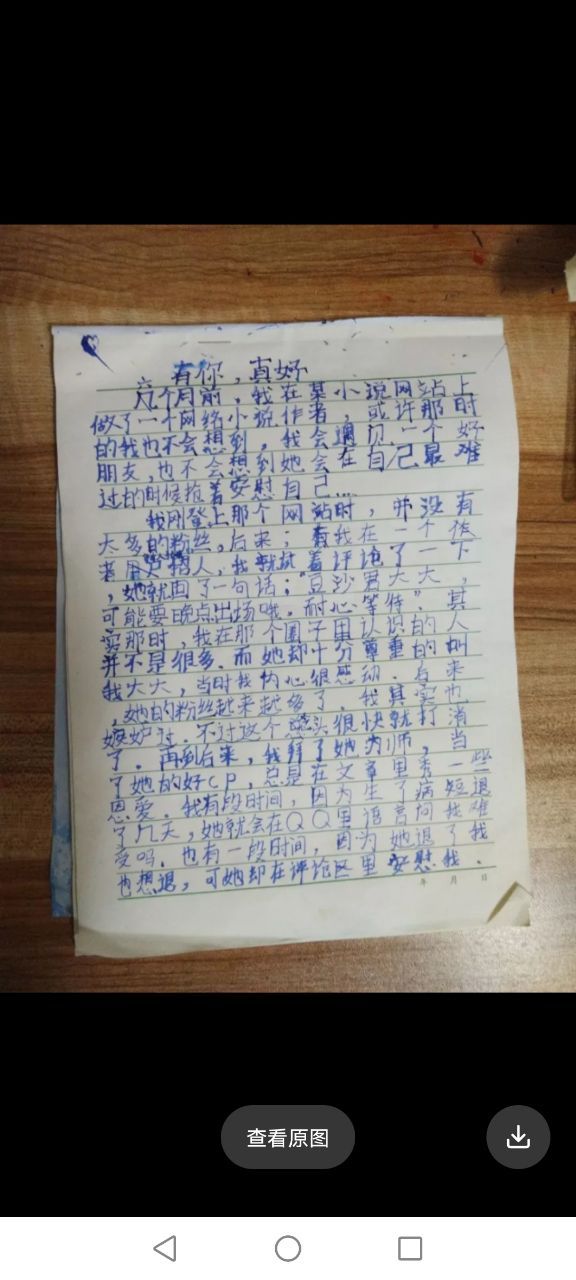 有你，真好
六几个月前，我在某小说网站上
做了一个网络小说作者，或许那时
的我也不会想到，我会遇见一个好
朋友，也不会想到她会在自己最难
过的时候抱着安慰自己…
我刚登上那个网站时，并没有
太多的粉丝，后来；看我在一个作
者招人，我就试着评论了一下
，她就回了一句话：“豆沙君大大，
可能要晚点出场哦。耐心等待”。其
实那时，我在那个圈子里认识的人
并不是很多。而她却十分尊重的叫
我大大，当时我内心很感动。后来
，她的粉丝越来越多了，我其实也
嫉妒过。不过这个念头很快就打消
了。再到后来，我拜了她为师，当
了她的好cp，总是在文章里秀一些
恩爱。我有段时间，因为生了病短退
了几天，她就会在QQ里语言问我难
受吗。也有一段时间，因为她退了我
也想退，可她却在评论区里安慰我．
年 月 日
查看原图